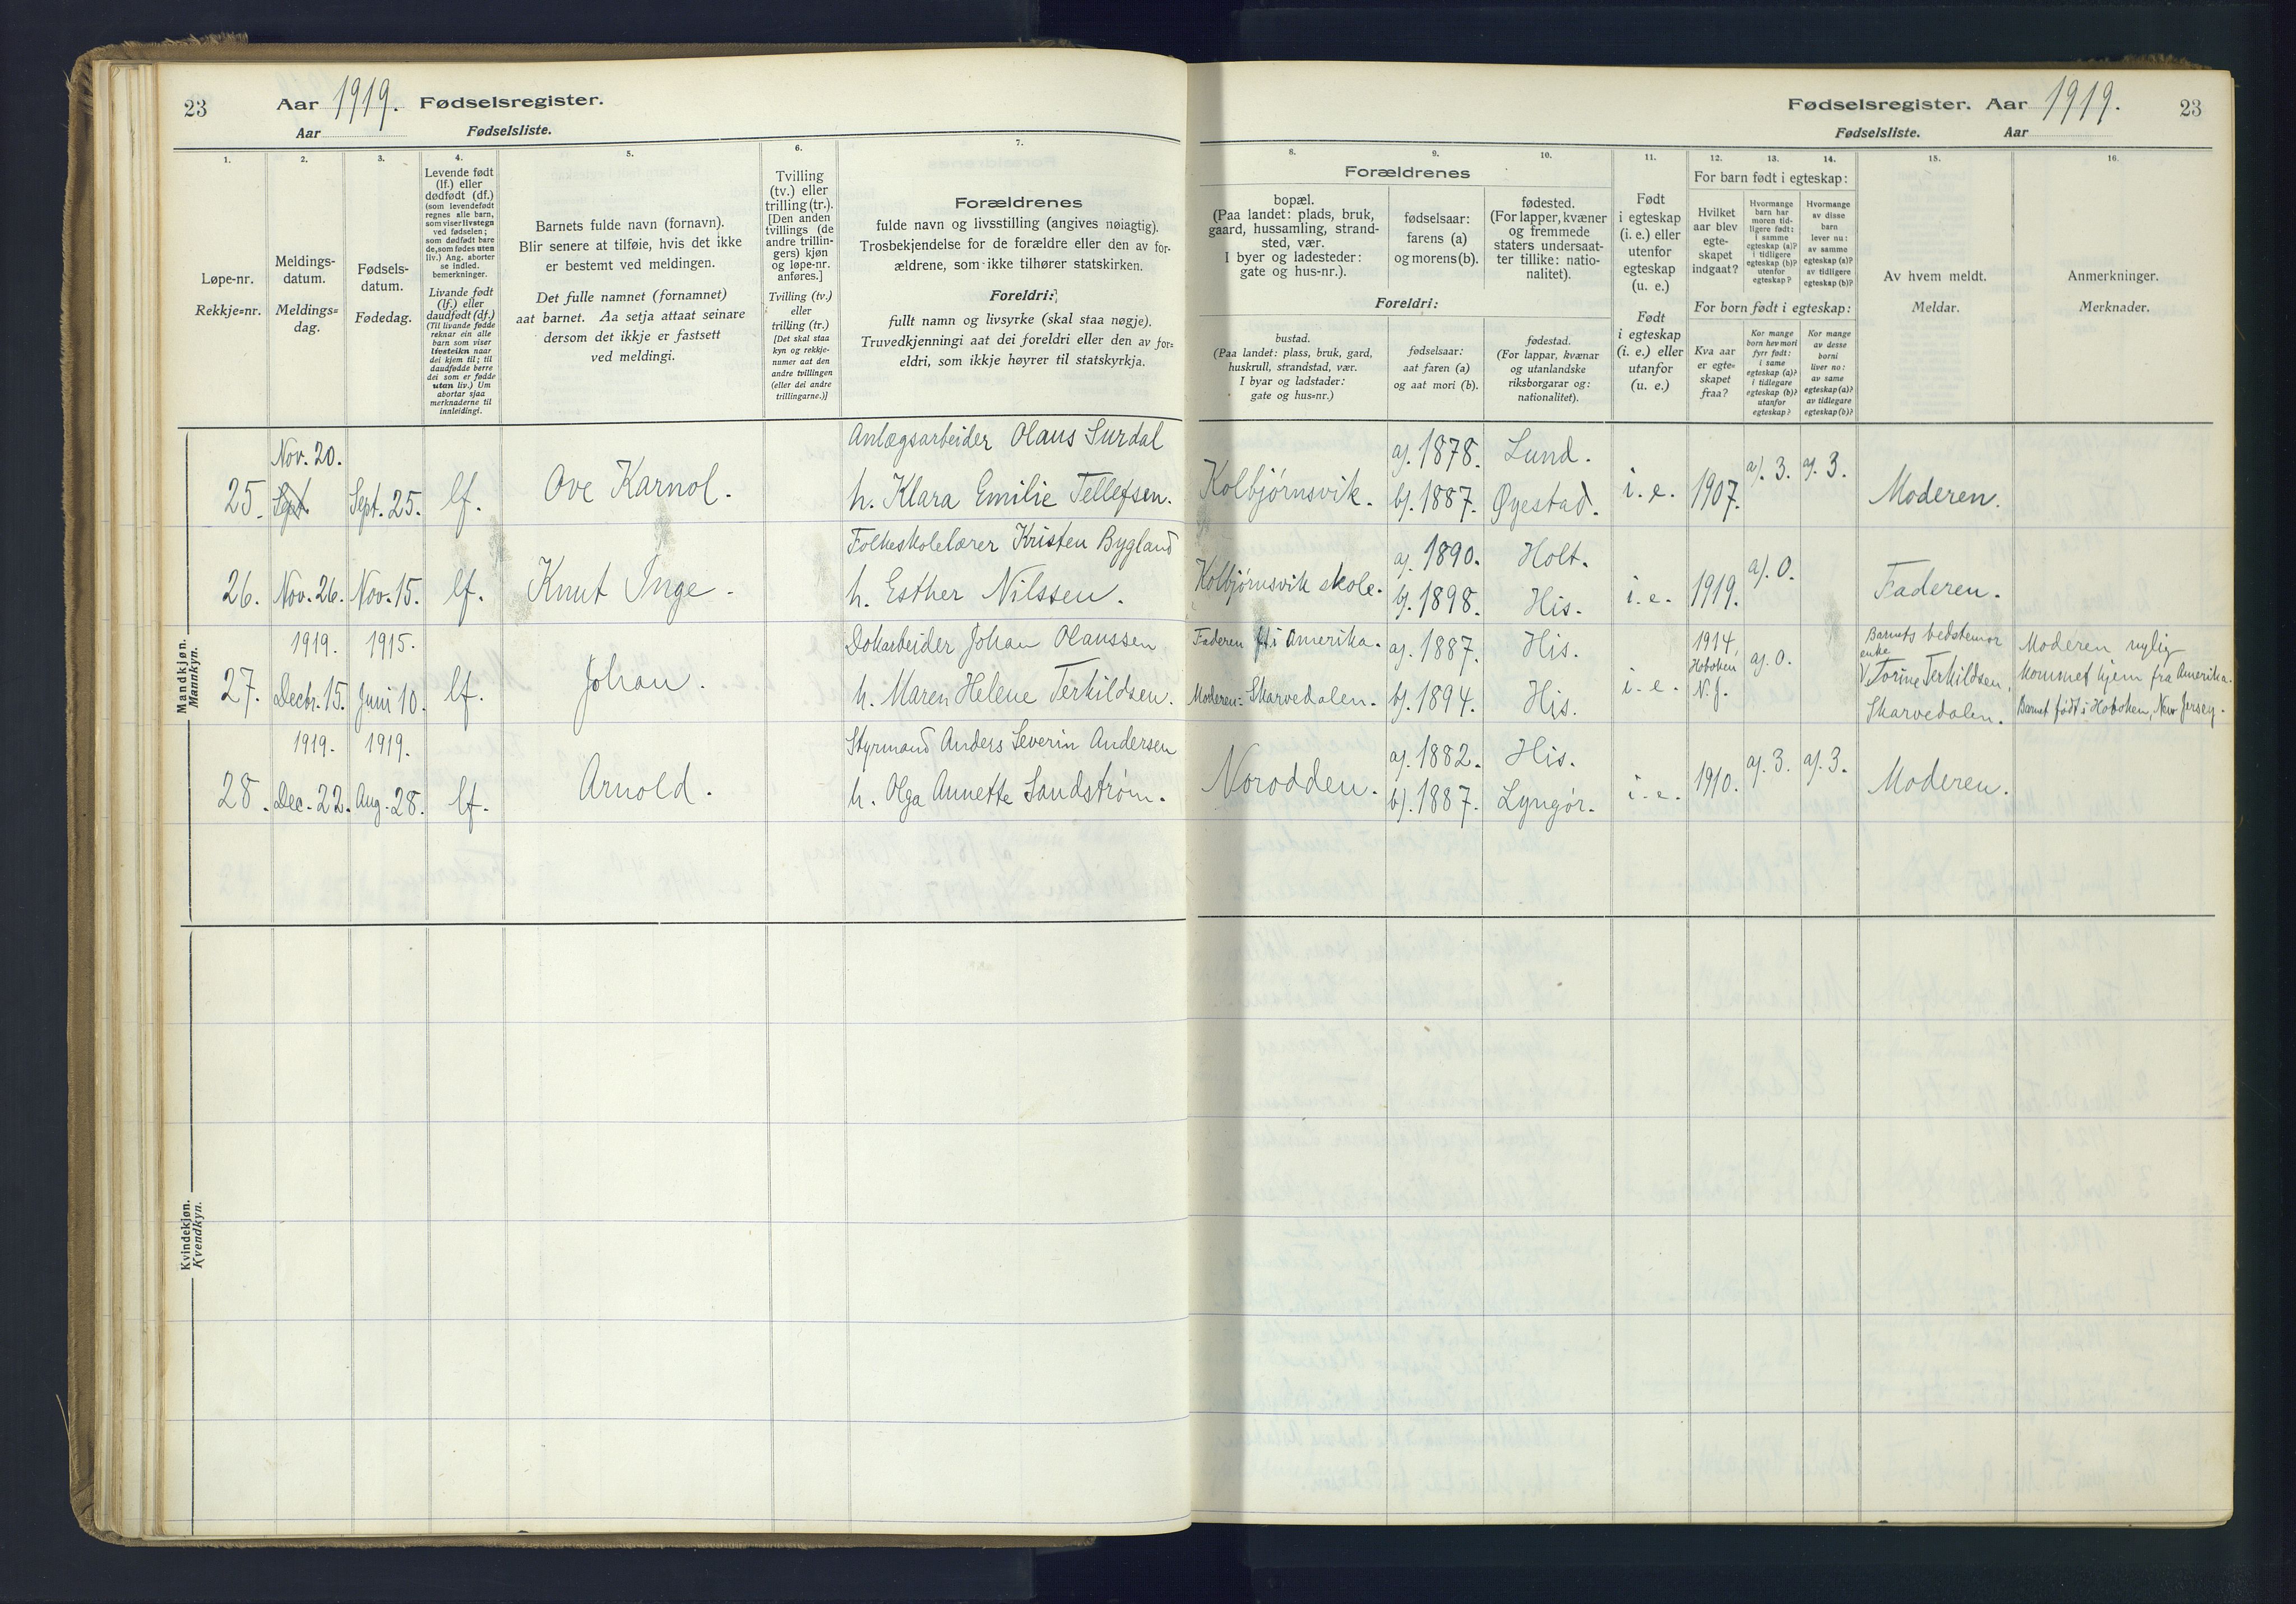 23
Aar 1919. Fødselsregister.
Aar Fødselsliste.
1.
Løpe-nr.
Rekkje=nr.
2.
Meldings-
datum.
Meldings=
dag.
3.
Fødsels-
datum.
Fødedag.
4.
Levende født
(lf.) eller
dødfødt (df.)
(som levendefødt
regnes alle barn,
som viser livstegn
ved fødselen;
som dødfødt bare
de, som fødes uten
liv.) Ang. aborter
se indled.
bemerkninger.
Livande født
(lf.) eller
daudfødt (df.)
(Til livande fødde
reknar ein alle
barn som viser
livsteikn naar
dei kjem til; til
daudfødde berre
dei som er fødde
utan liv.) Um
abortar sjaa
merknaderne til
innleidingi.
5.
Barnets fulde navn (fornavn).
Blir senere at tilføie, hvis det ikke
er bestemt ved meldingen.
Det fulle namnet (fornamnet)
aat barnet. Aa setja attaat seinare
dersom det ikkje er fastsett
ved meldingi.
6.
Tvilling
(tv.) eller
trilling (tr.).
[Den anden
tvillings (de
andre trillin-
gers) kjøn
og løpe-nr.
anføres.]
Tvilling (tv.)
eller
trilling (tr.)
[Det skal staa
kyn og rekkje-
numer aat den
andre tvillingen
(eller dei andre
trillingarne.)]
7.
Forældrenes
fulde navn og livsstilling (angives nøiagtig).
Trosbekjendelse for de forældre eller den av for-
ældrene, som ikke tilhører statskirken.
Foreldri:
fullt namn og livsyrke (skal staa nøgje).
Truvedkjenningi aat dei foreldri eller den av for=
eldri, som ikkje høyrer til statskyrkja.
Mandkjøn.
Mannkyn.
Nov. 20.
25. Sept. Sept. 25. lf. Ove Karnol.
Anlægsarbeider Olaus Surdal
h. Klara Emilie Tellefsen.
26. Nov. 26. Nov. 15. lf. Knut Inge.
Folkeskolelærer Kristen Bygland
h. Esther Nilssen.
1919. 1915.
27. Decbr. 15. Juni 10. lf. Johan.
Dokarbeider Johan Olaussen
h. Maren Helene Terkildsen.
1919. 1919.
28. Dec. 22. Aug. 28. lf. Arnold.
Styrmand Anders Severin Andersen
h. Olga Annette Sandstrøm.
Kvindekjøn.
Kvendkyn.
Fødselsregister. Aar 1919. 23
Fødselsliste. Aar
Forældrenes
8.
bopæl.
(Paa landet: plads, bruk,
gaard, hussamling, strand-
sted, vær.
I byer og ladesteder:
gate og hus-nr.).
9.
fødselsaar:
farens (a)
og morens (b).
10.
fødested.
(For lapper, kvæner
og fremmede
staters undersaat-
ter tillike: natio-
nalitet).
Foreldri:
bustad.
(Paa landet: plass, bruk, gard,
huskrull, strandstad, vær.
I byar og ladstader:
gate og hus=nr.)
fødselsaar:
aat faren (a)
og aat mori (b).
fødestad.
(For lappar, kvænar
og utanlandske
riksborgarar og:
nationalitet).
11.
Født
i egteskap
(i. e.) eller
utenfor
egteskap
(u. e.)
Født
i egteskap
(i. e.) eller
utanfor
(u. e.)
12. 13. 14.
For barn født i egteskap:
Hvilket
aar blev
egte-
skapet
indgaat?
Hvormange
barn har
moren tid-
ligere født:
i samme
egteskap (a)?
i tidligere
egteskap (b)?
utenfor
egteskap?
Hvormange
av disse
barn
lever nu:
av samme
egteskap (a)?
av tidligere
egteskap (b)?
For born født i egteskap:
Kva aar
er egte=
skapet
fraa?
Kor mange
born hev mori
fyrr født:
i same
egteskap (a)?
i tidlegare
egteskap (b)?
utanfor
egteskap?
Kor mange
av desse
borni
liver no:
av same
egteskap (a)?
av tidlegare
egteskap (b)?
15.
Av hvem meldt.
Meldar.
16.
Anmerkninger.
Merknader.
Kolbjørnsvik. a). 1878. Lund.
b). 1887. Øyestad. i. e. 1907. a). 3. a). 3. Moderen.
Kolbjørnsvik skole. a). 1890. Holt.
b). 1898. His. i. e. 1919. a). 0. Faderen.
Faderen i Amerika. a). 1887. His.
Moderen: Skarvedalen. b). 1894. His. i. e.
1914,
Hoboken
N. J.
a). 0.
Barnets bedstemor
enke
Torine Terkildsen,
Skarvedalen.
Moderen nylig
kommet hjem fra Amerika.
Barnet født i Hoboken, New Jersey.
Norodden. a). 1882. His.
b). 1887. Lyngør. i. e. 1910. a). 3. a). 3. Moderen.